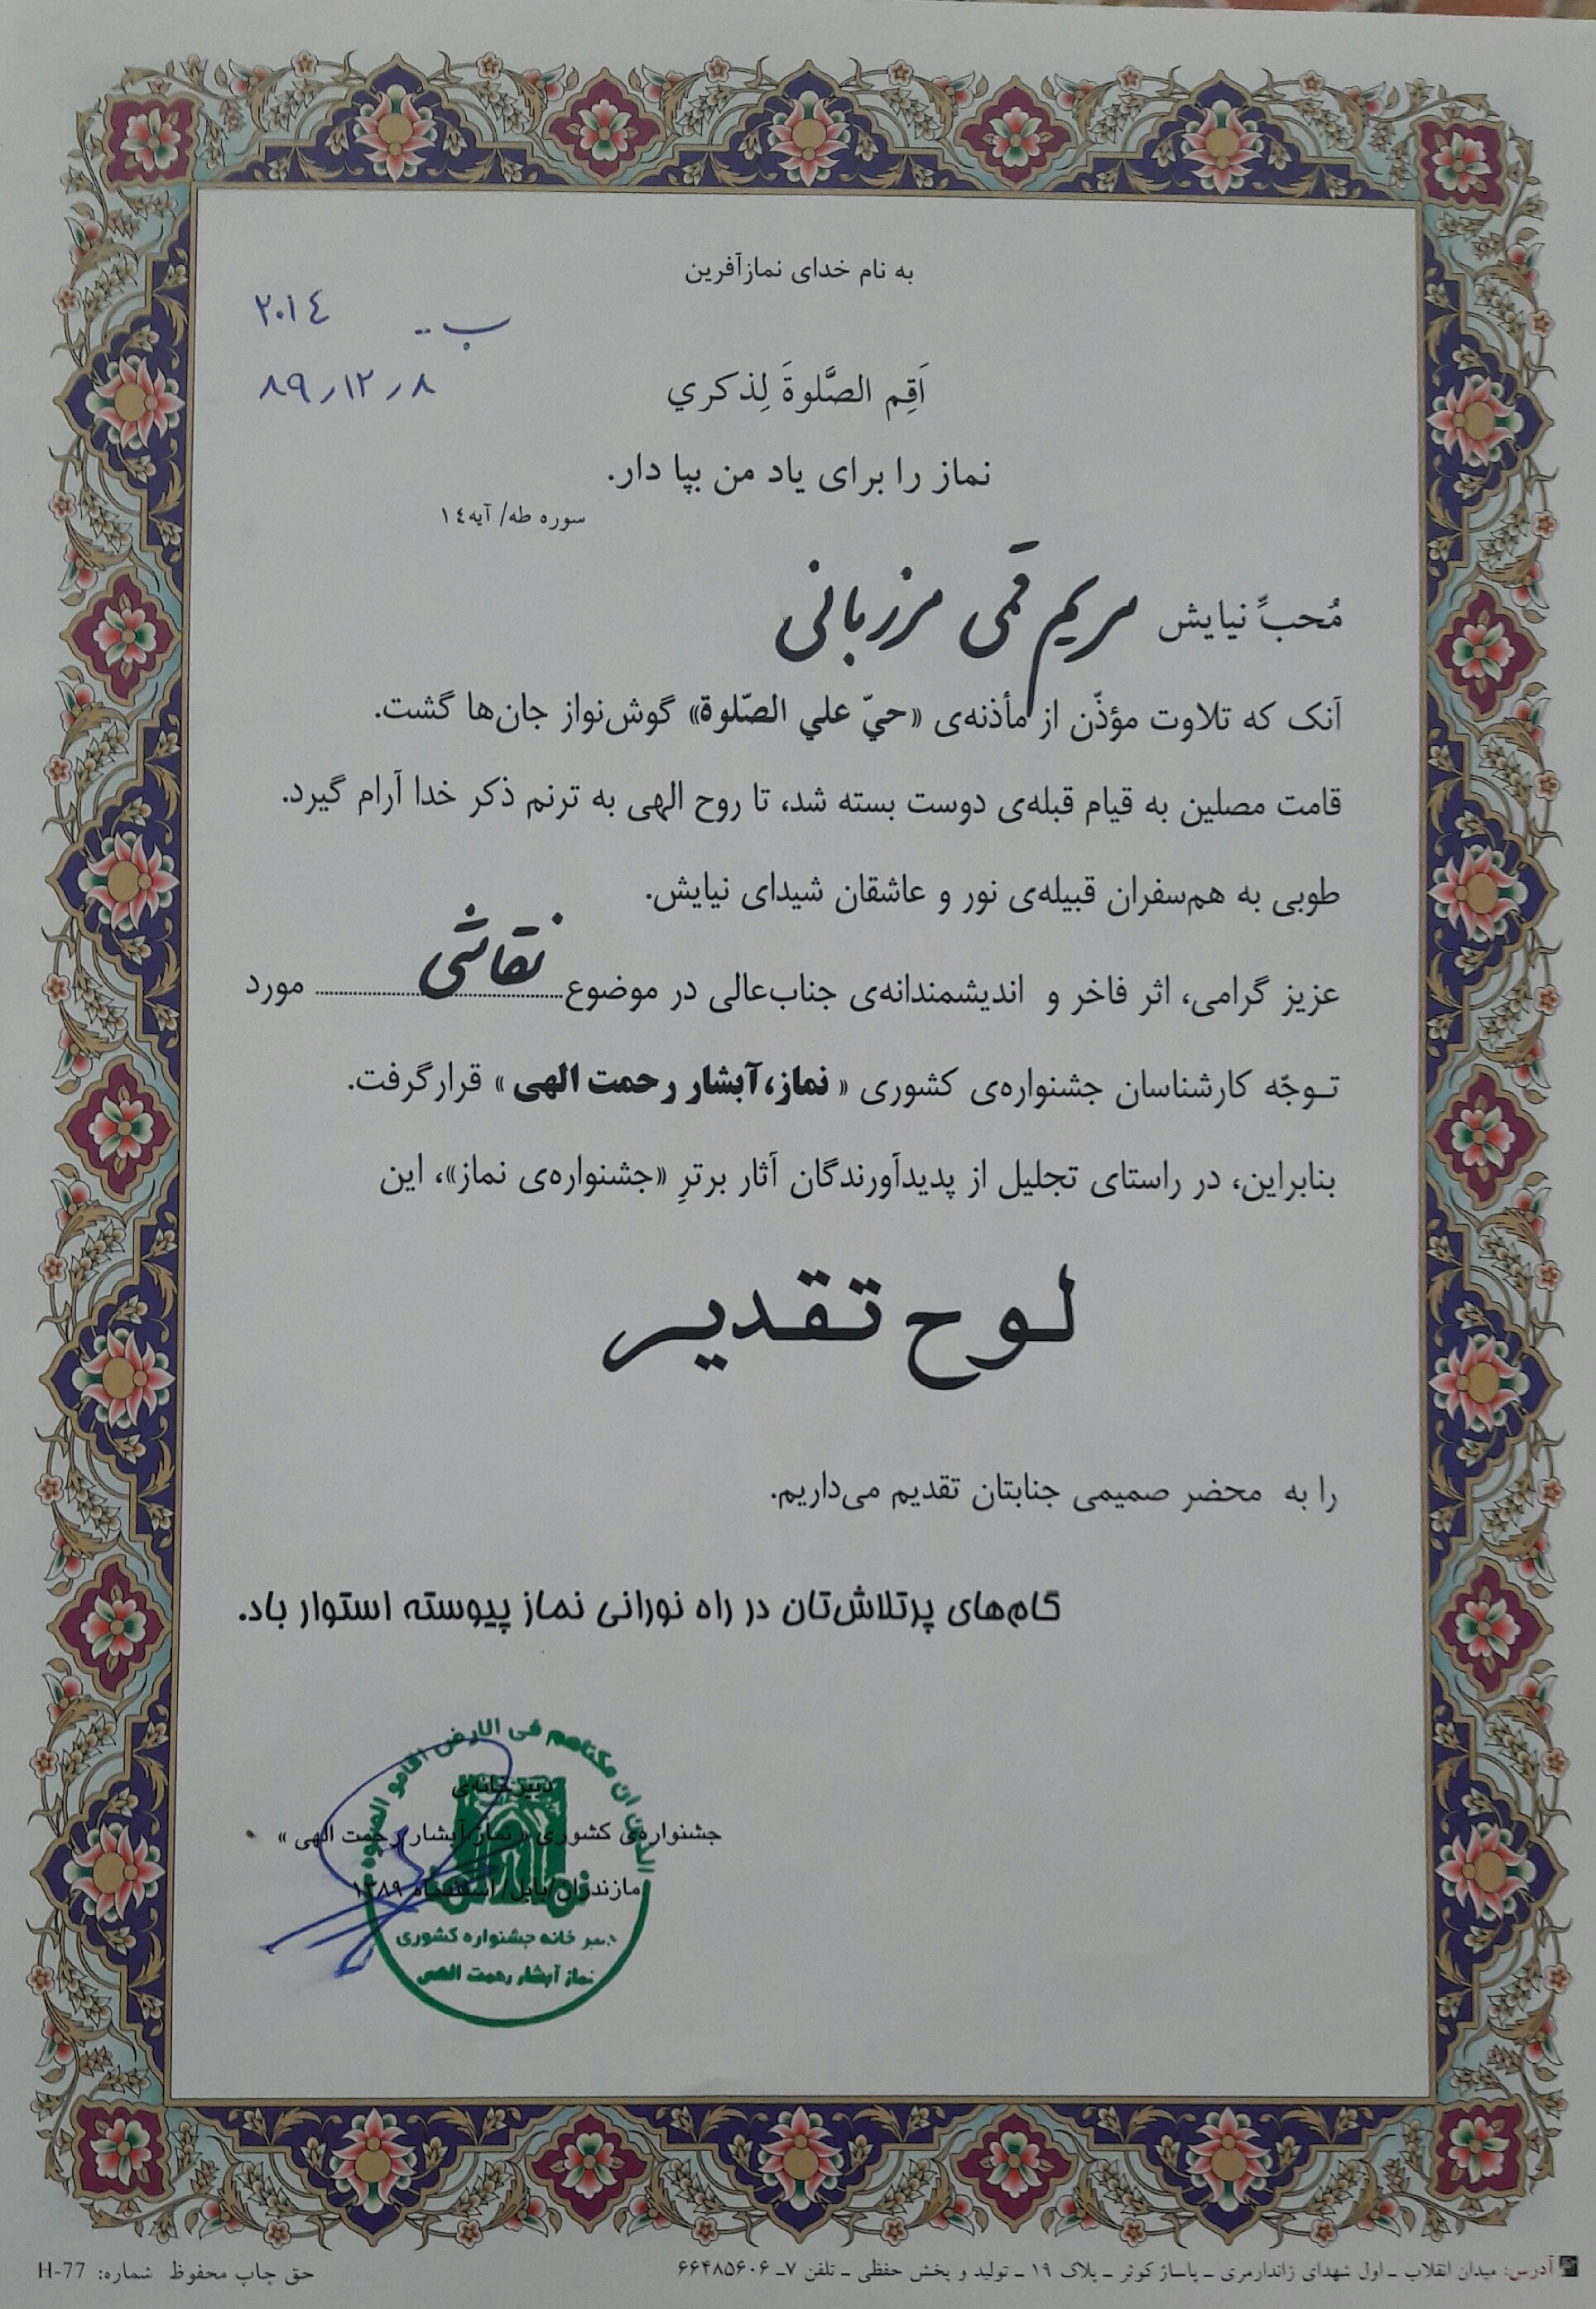 به نام خدای نمازآفرین
ب- ٢٠١٤
٨٩/١٢/٨
اَقِم الصَّلوةَ لِذکري
نماز را برای یاد من بپا دار.
سوره طه/ آیه١٤
مُحبِّ نیایش مریم قمی مرزبانی
آنک که تلاوت مؤذّن از مأذنه‌ی «حيّ علي الصّلوة» گوش‌نواز جان‌ها گشت.
قامت مصلین به قیام قبله‌ی دوست بسته شد، تا روح الهی به ترنم ذکر خدا آرام گیرد.
طوبی به هم‌سفران قبیله‌ی نور و عاشقان شیدای نیایش.
عزیز گرامی، اثر فاخر و اندیشمندانه‌ی جناب‌عالی در موضوع نقاشی مورد
تـوجّه کارشناسان جشنواره‌ی کشوری « نماز، آبشار رحمت الهی » قرارگرفت.
بنابراین، در راستای تجلیل از پدیدآورندگان آثار برترِ «جشنواره‌ی نماز»، این
لـوح تـقـدیـر
را به محضر صمیمی جنابتان تقدیم می‌داریم.
گام‌های پرتلاش‌تان در راه نورانی نماز پیوسته استوار باد.
الذین ان مکناهم فی الارض اقامو الصلوه
دبیرخانه‌ی
جشنواره‌ی کشوری « نماز، آبشار رحمت الهی »
مازندران/بابل/ اسفندماه ١٣٨٩
دبیر خانه جشنواره کشوری
نماز آبشار رحمت الهی
آدرس: میدان انقلاب ـ اول شهدای ژاندارمری ـ پاساژ کوثر ـ پلاک ۱۹ ـ تولید و پخش حفظی ـ تلفن ۷ـ ۶۶۴۸۵۶۰۶
حق چاپ محفوظ شماره: H-77